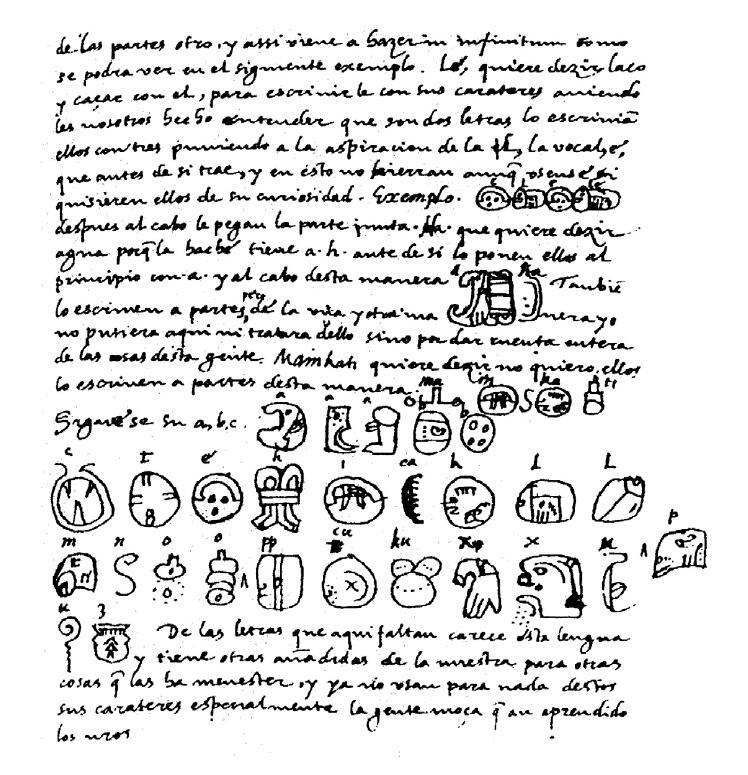 de las partes otro, y assi viene a hazer in infinitum como
se podra ver en el siguiente exemplo. Lé, quiere dezir laço
y caçar con el, para escrivirle con sus carateres aviendo
les nosotros hecho entender que son dos letras lo escrivian
ellos con tres puniendo a la aspiracion de la l, la vocal, é,
que antes de si trae, y en esto no hierran aunq̄ usense si
quisieren ellos de su curiosidad. Exemplo.
despues al cabo le pegan la parte junta. Ha. que quiere dezir
agua porq̄ la haché tiene a. h. ante de si lo ponen ellos al
principio con a. y al cabo desta manera a ha Tanbie
lo escriven a partes, pero de la una y otra ma nera yo
no pusiera aqui ni tratara dello sino por dar cuenta entera
de las cosas desta gente. Mainkati quiere dezir no quiero, ellos
lo escriven a partes desta manera ma in ka ti
Siguese su a, b, c. a a a b b
c t é h i ca k l l
m n o o pp cu ku x x u p
u z De las letras que aqui faltan carece esta lengua
y tiene otras añadidas de la nuestra para otras
cosas q̄ las ha menester, y ya no usan para nada destos
sus carateres especialmente la gente moça q̄ an aprendido
los nros